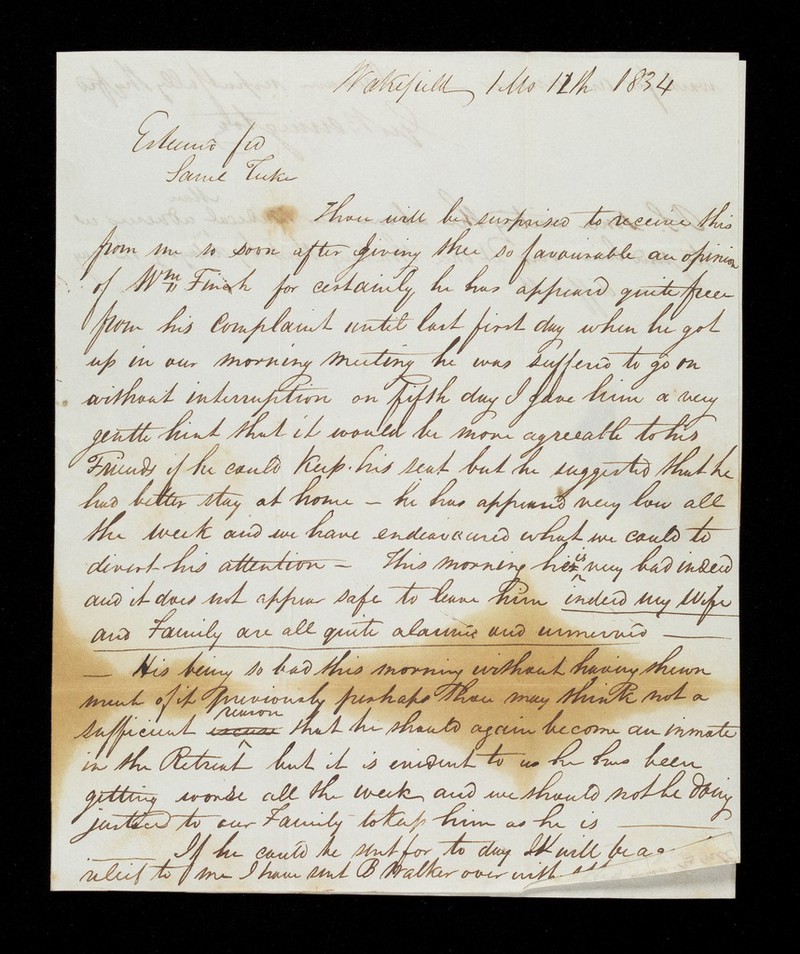 Wakefield 1 Mo 12th 1834
Esteem'd frd
Saml Tuke
Thou will be surprised to receive this
from me so soon after giving thee so favourable an opinion
of Wm Finch for certainly he has appeard quite free
from his Complaint until last first day when he got
up in our morning meeting he was suffer'd to go on
without interruption on fifth day I gave him a very
gentle hint that it would be more agreeable to his
Friends if he could Keep his seat but he suggested that he
had better stay at home – he has appeard very low all
the week and we have endeavoured what we could to
divert his attention – This morning he is very bad indeed
and it does not appear safe to leave him indeed my Wife
and Family are all quite alarm'd and unnerved —
— His being so bad this morning without having shewn
much of it previously perhaps Thou may think not a
reason
sufficient excuse that he should again become an inmate
in the Retreat but it is evident to us he has been
getting worse all the week and we should not be doing
justice to our Family to Keep him as he is —
If he could be sent for to day It will be a
relief to me I have sent B Walker over with